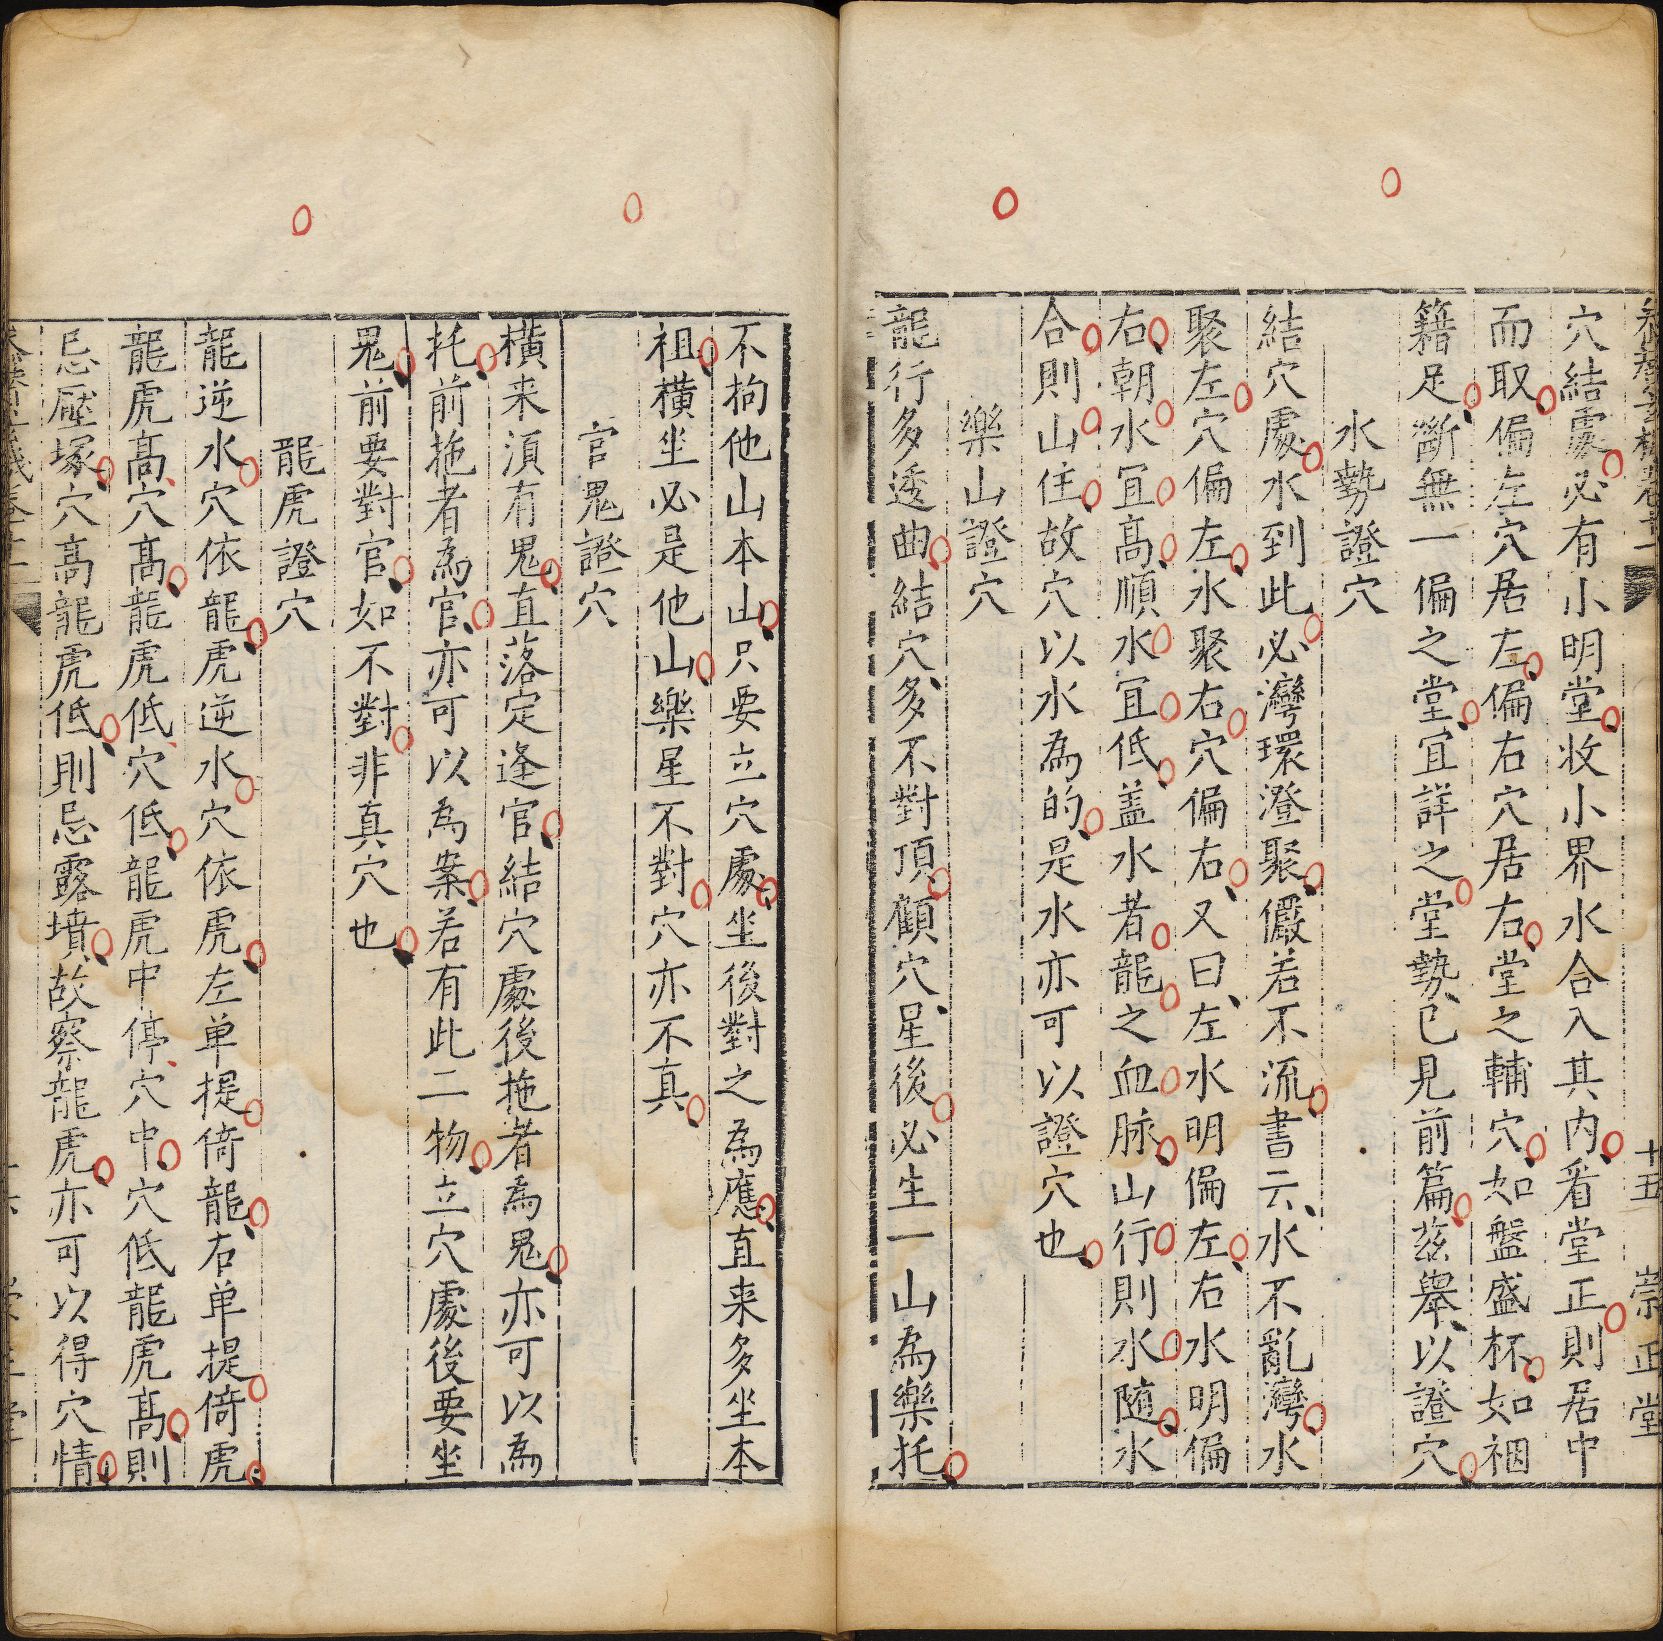 十五 崇正堂
穴結處必有小明堂收小界水合入其內看堂正則居中
而取偏左穴居左偏右穴居右堂之輔穴如盤盛杯如裀
籍足斷無一偏之堂宜詳之堂勢已見前篇茲舉以證穴
水勢證穴
結穴處水到此必灣環澄聚儼若不流書云水不亂灣水
聚左穴偏左水聚右穴偏右又曰左水明偏左右水明偏
右朝水宜高順水宜低盖水者龍之血脉山行則水随水
合則山住故穴以水為的是水亦可以證穴也
樂山證穴
龍行多透曲結穴多不對頂顧穴星後必生一山為樂托
不拘他山本山只要立穴處坐後對之為應直来多坐本
祖橫坐必是他山樂星不對穴亦不真
官鬼證穴
橫来須有鬼直落定逢官結穴處後拖者為鬼亦可以為
托前拖者為官亦可以為案若有此二物立穴處後要坐
鬼前要對官如不對非真穴也
龍虎證穴
龍逆水穴依龍虎逆水穴依虎左单提倚龍右单提倚虎
龍虎高穴高龍虎低穴低龍虎中停穴中穴低龍虎高則
忌壓塚穴高龍虎低則忌露墳故察龍虎亦可以得穴情